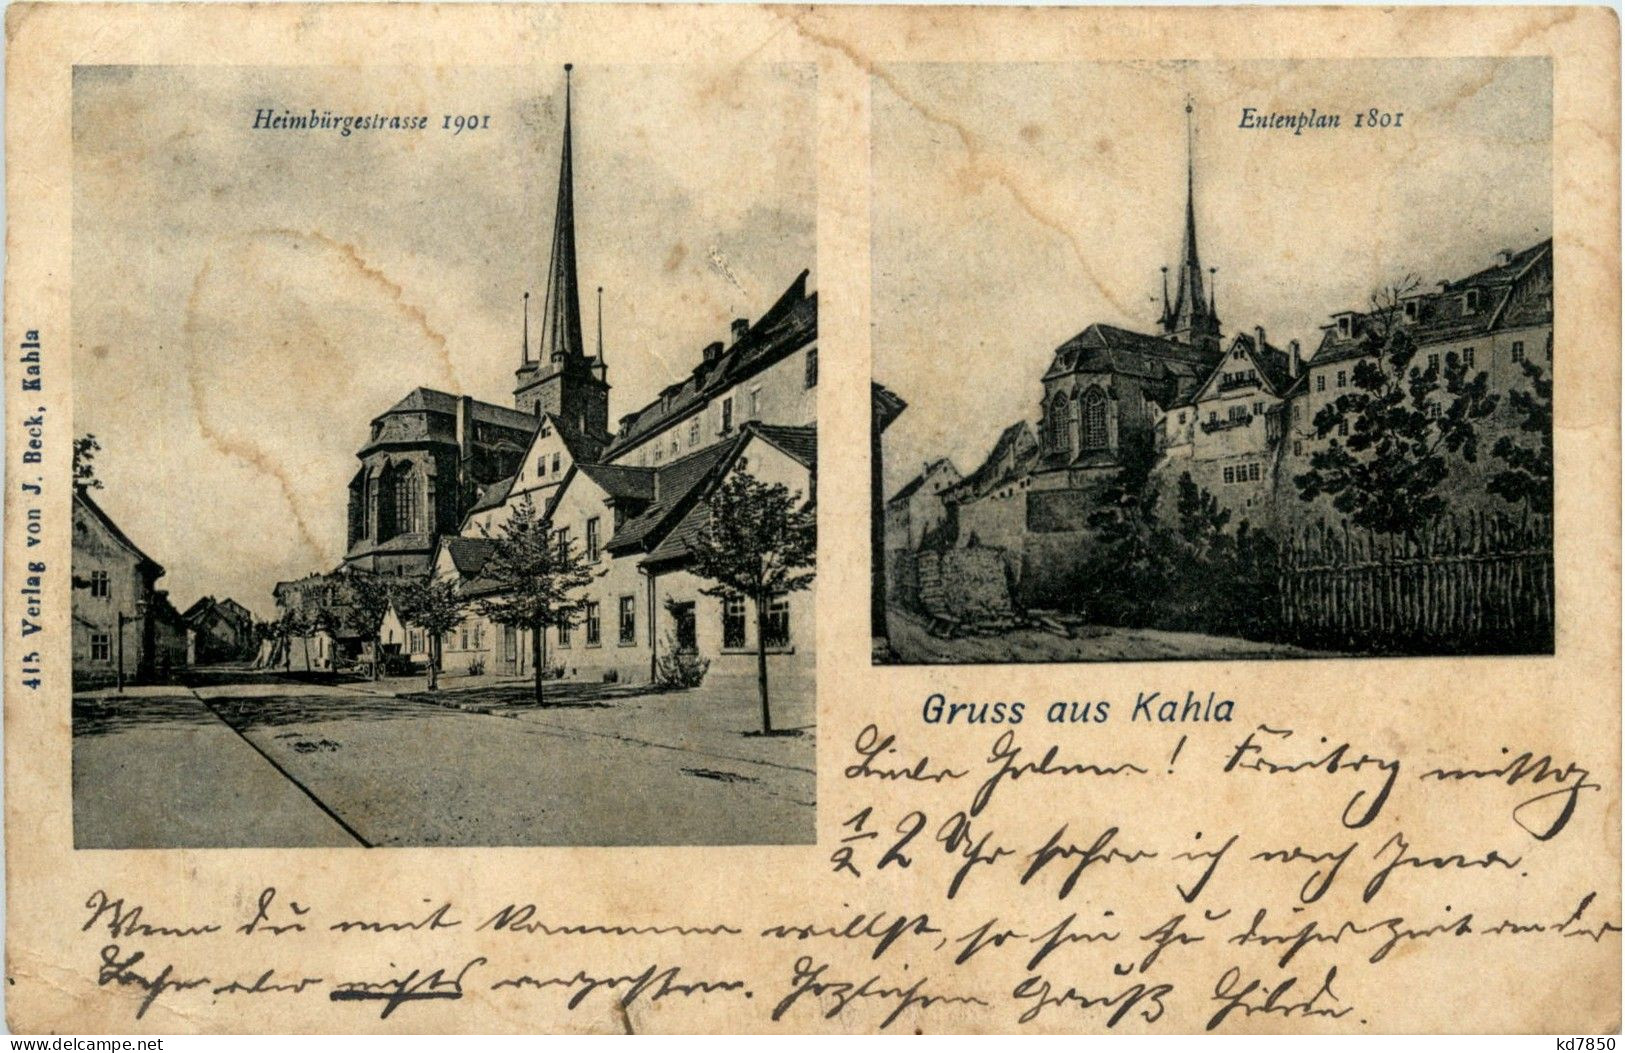 Heimbürgestrasse 1901
Entenplan 1801
415 Verlag von J. Beck, Kahla
Gruss aus Kahla
Liebe ! Freitag mittag
1/2 2 Uhr fahre ich nach Jena.
Wenn Du mit kommen willst, so sei zu dieser Zeit an der
Bahn aber nichts vergessen. Herzlichen Gruß Hilda.
kd7850
delcampe.net